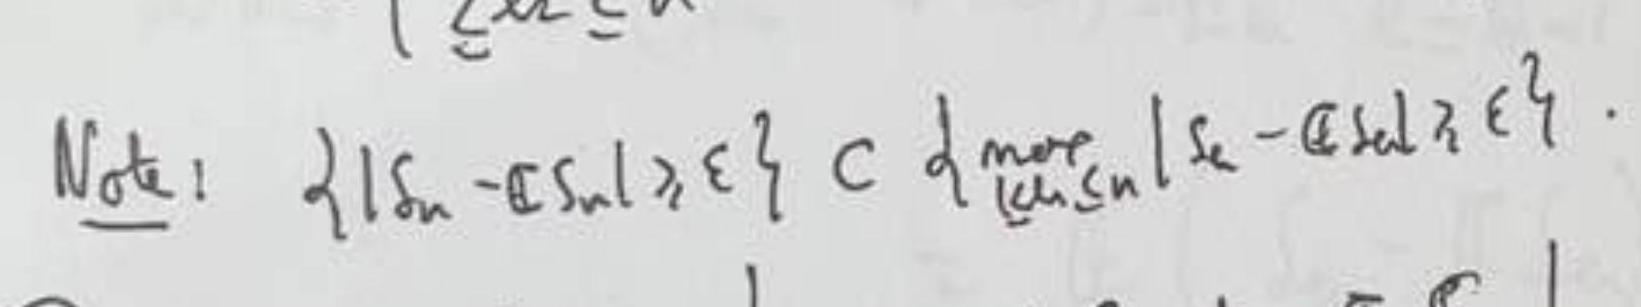 1 ≤ k ≤ n
Note: {|Sn - 𝔼Sn| ≥ ε} ⊂ {max 1≤k≤n |Sk - 𝔼Sk| ≥ ε}.